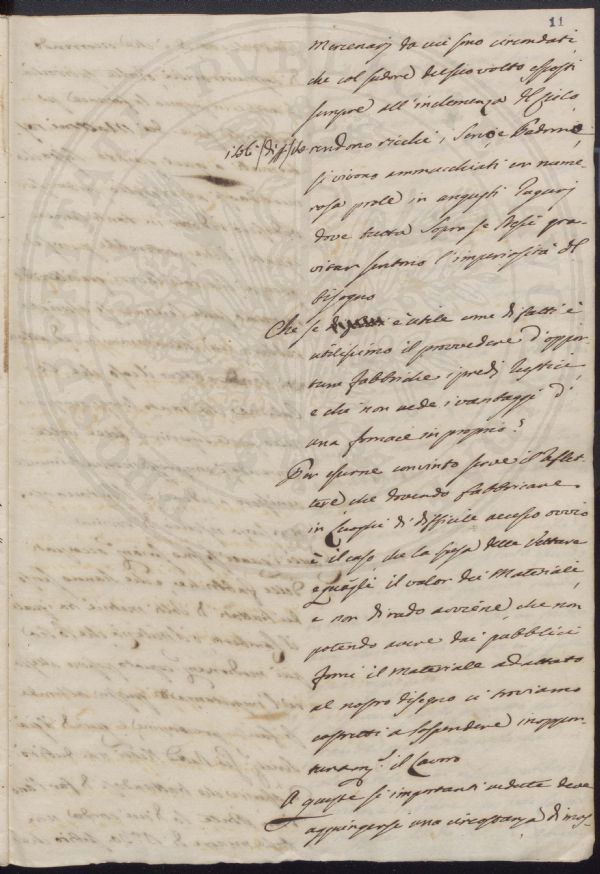 11
Mercenarj da cui sono circondati,
che col sudore del suo volto esposti
sempre all'inclemenza del Cielo
rendono ricchi, Servo e Padrone
si vivono ammucchiati in nume
rosa prole in angusti Tugurj
dove tutta sopra se stessi gra-
vitar sentono l'imperiosità del
bisogno
Che se è utile come di fatti è
utilissimo il provvedere d'oppor-
tune fabbriche i predj rustici
e chi non vede i vantaggi d'
una fornace in proprio?
Per esserne convinto serve il riflet-
tere che dovendo fabbricare
in luoghi di difficile accesso ovvio
è il caso che la spesa delle Vetture
eguagli il valor dei Materiali
e non di rado avviene che non
potendo avere dai pubblici
forni il Materiale adattato
al nostro disegno ci troviamo
costretti a sospendere inoppor-
tunam.e il Lavoro
A queste sì importanti vedute deve
aggiungersi una circostanza di mos-